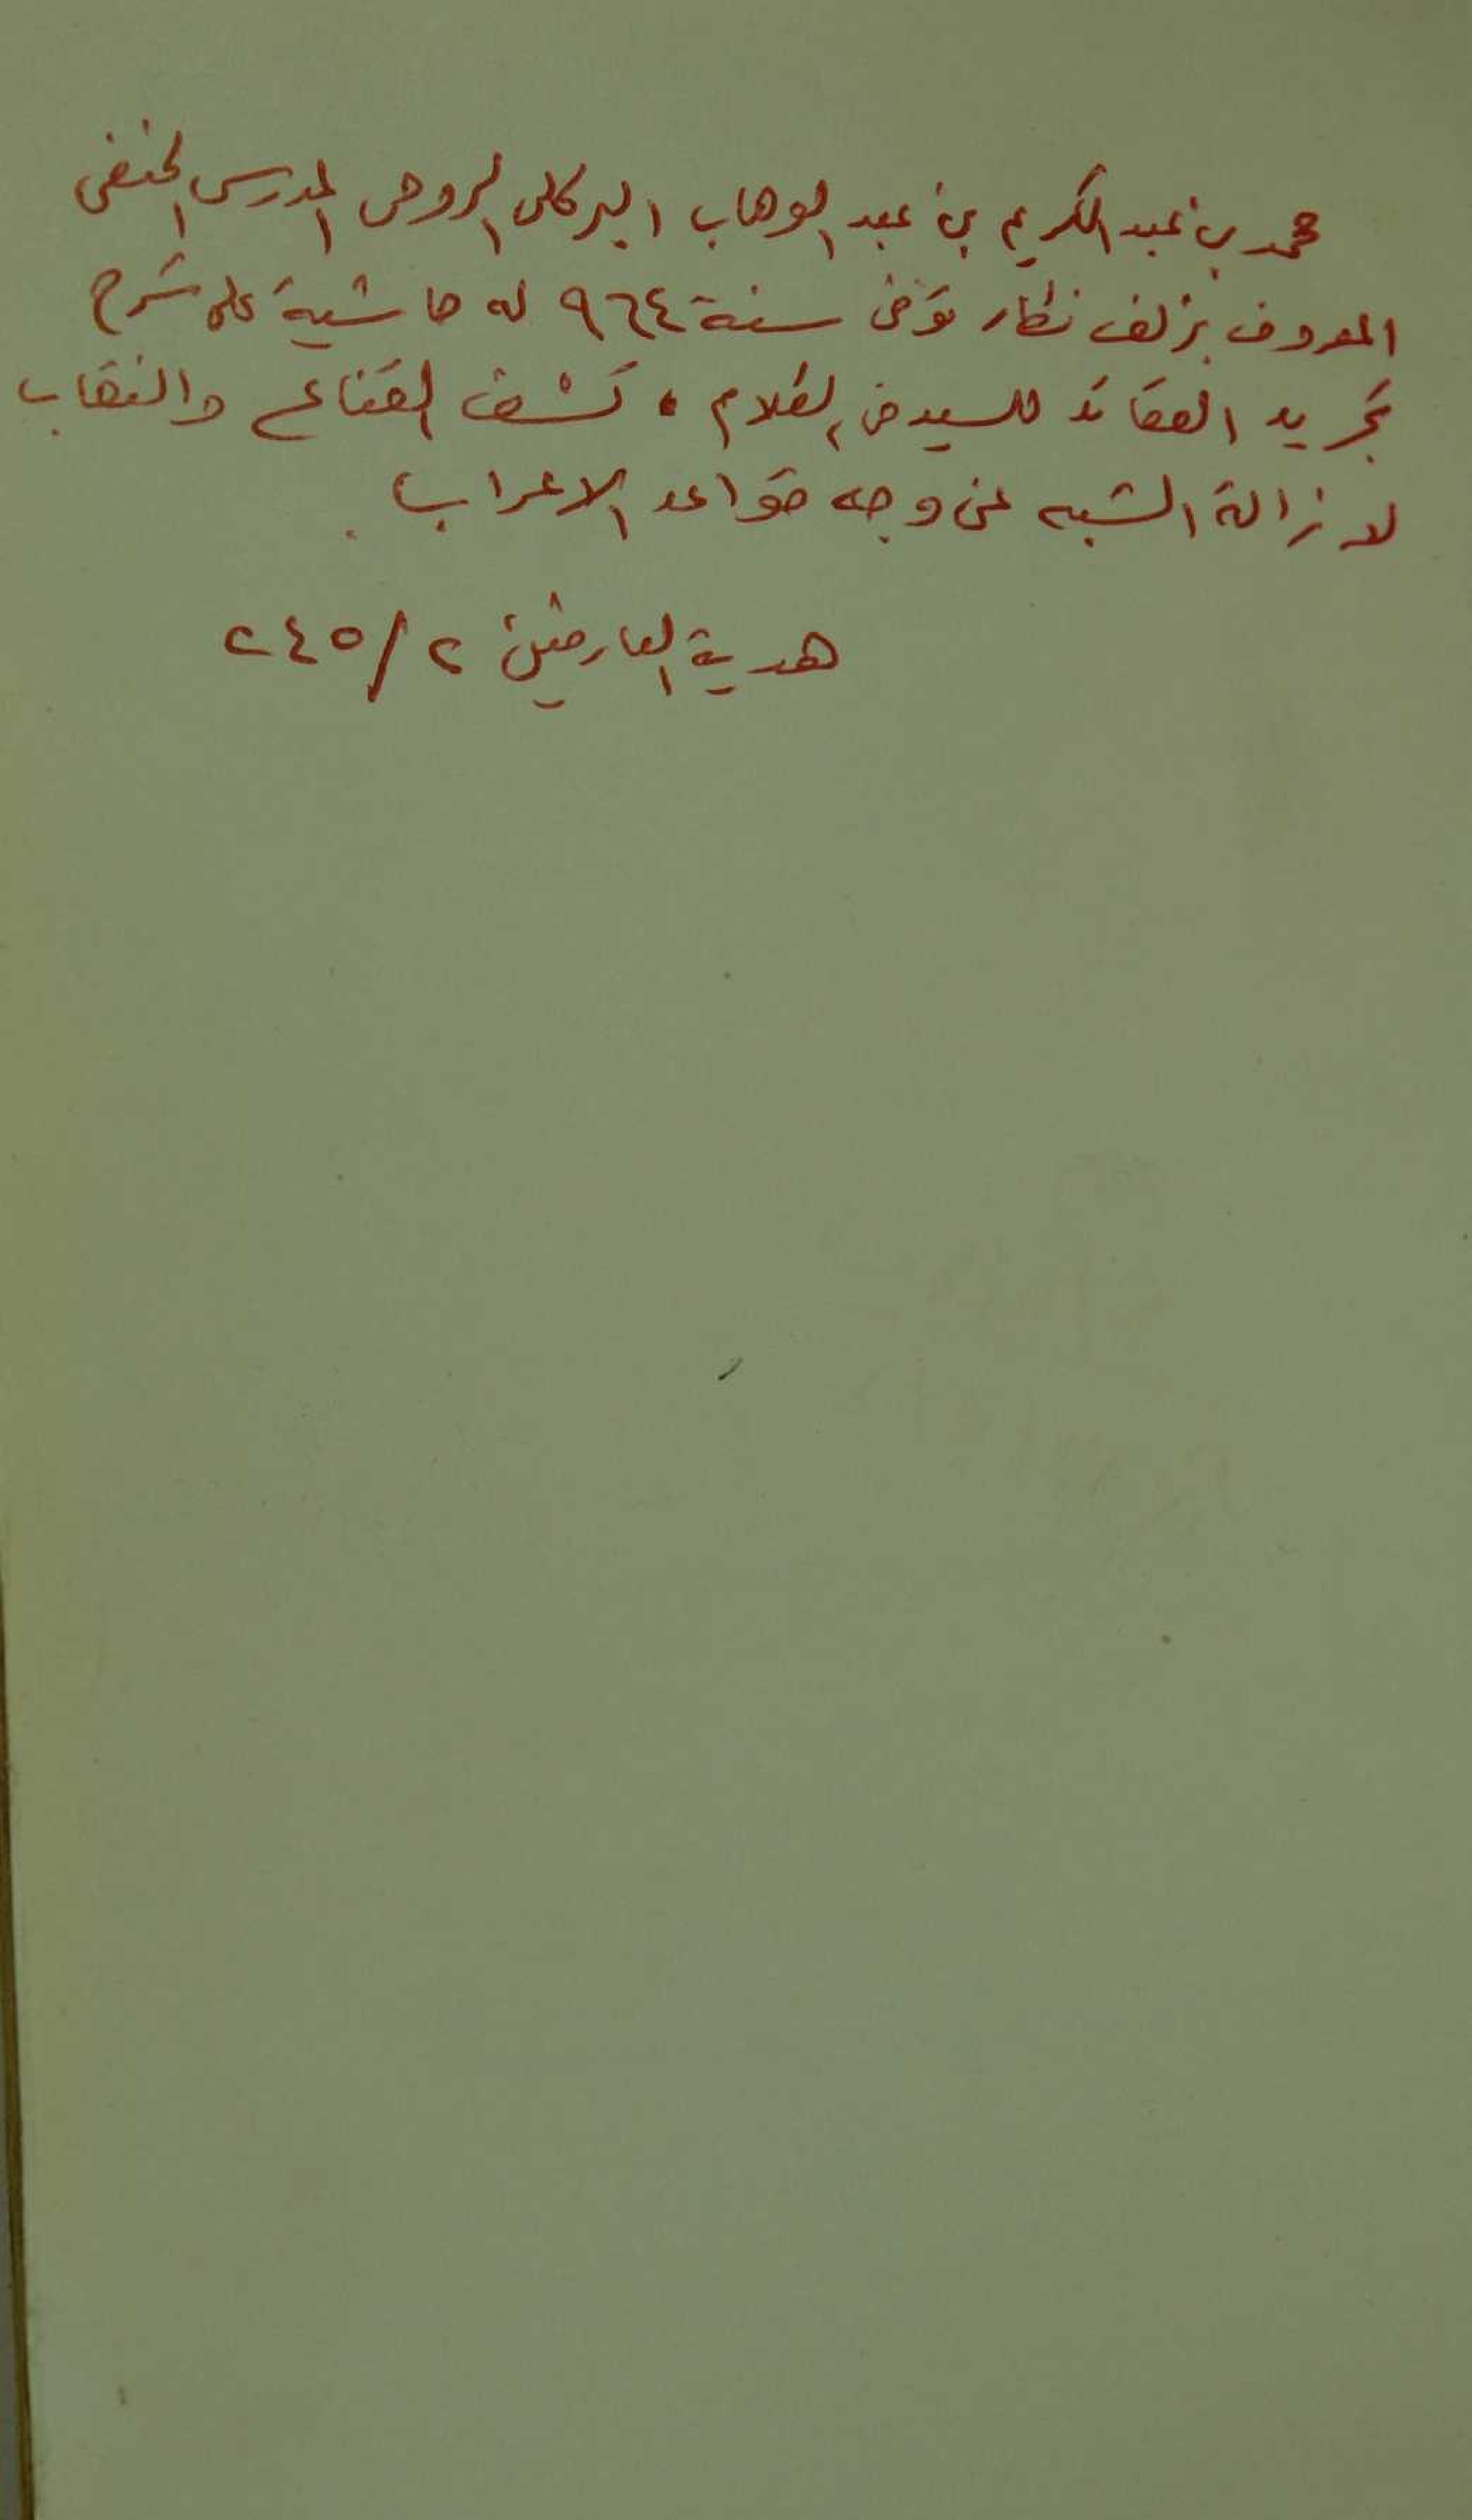 محمد بن عبد الكريم بن عبد الوهاب البركلى الرومى المدرس الحنفى
المعروف بزلف نكار توفى سنة ٩٦٤ له حاشية على شرح
تجريد العقائد للسيد فى الكلام، كشف القناع والنقاب
لازالة الشبه عن وجه قواعد الاعراب.
هدية العارفين ٢/٢٤٥